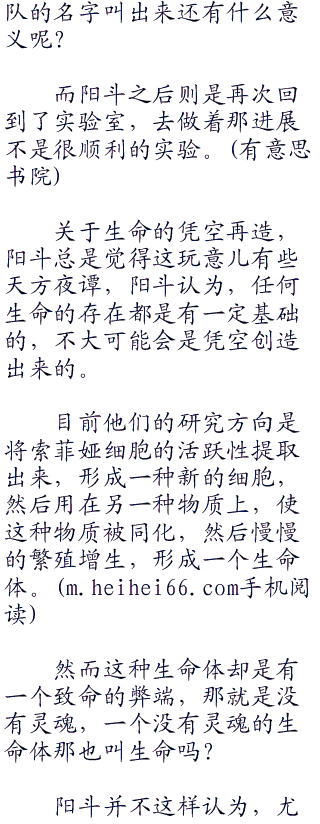 队的名字叫出来还有什么意
义呢？
而阳斗之后则是再次回
到了实验室，去做着那进展
不是很顺利的实验。(有意思
书院)
关于生命的凭空再造，
阳斗总是觉得这玩意儿有些
天方夜谭，阳斗认为，任何
生命的存在都是有一定基础
的，不大可能会是凭空创造
出来的。
目前他们的研究方向是
将索菲娅细胞的活跃性提取
出来，形成一种新的细胞，
然后用在另一种物质上，使
这种物质被同化，然后慢慢
的繁殖增生，形成一个生命
体。(m.heihei66.com手机阅
读)
然而这种生命体却是有
一个致命的弊端，那就是没
有灵魂，一个没有灵魂的生
命体那也叫生命吗？
阳斗并不这样认为，尤